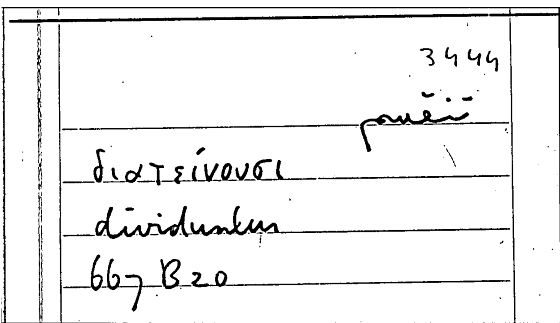 3444
διατείνουσι
dividuntur
667 B20